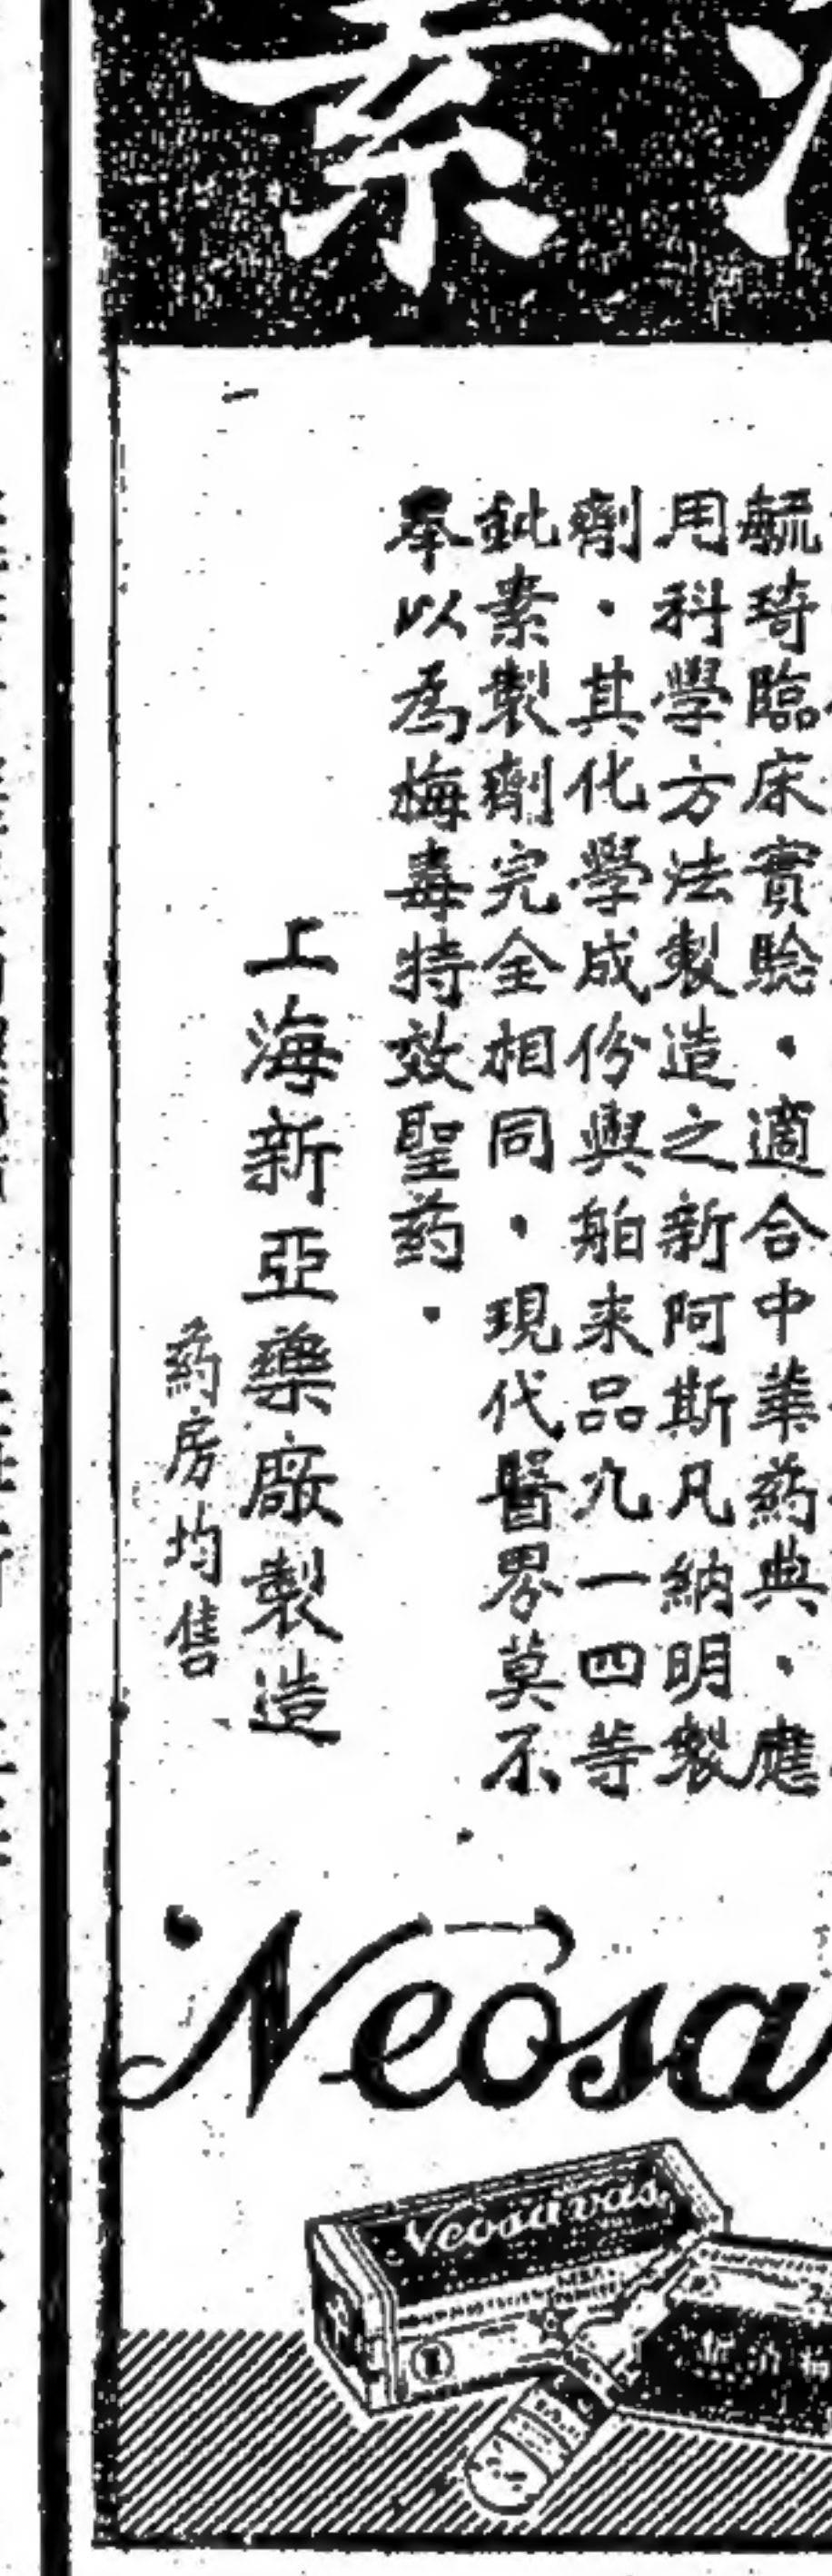 素
毓琦臨床實騐・適合中華葯典・應
用科學方法製造之新阿斯凡納明製
劑・其化學成份與舶來品九一四等
鈲素製劑完全相同・現代醫界莫不
羣以為梅毒特效聖葯・
上海新亞藥廠製造
葯房均售
Neosa
Neosavas